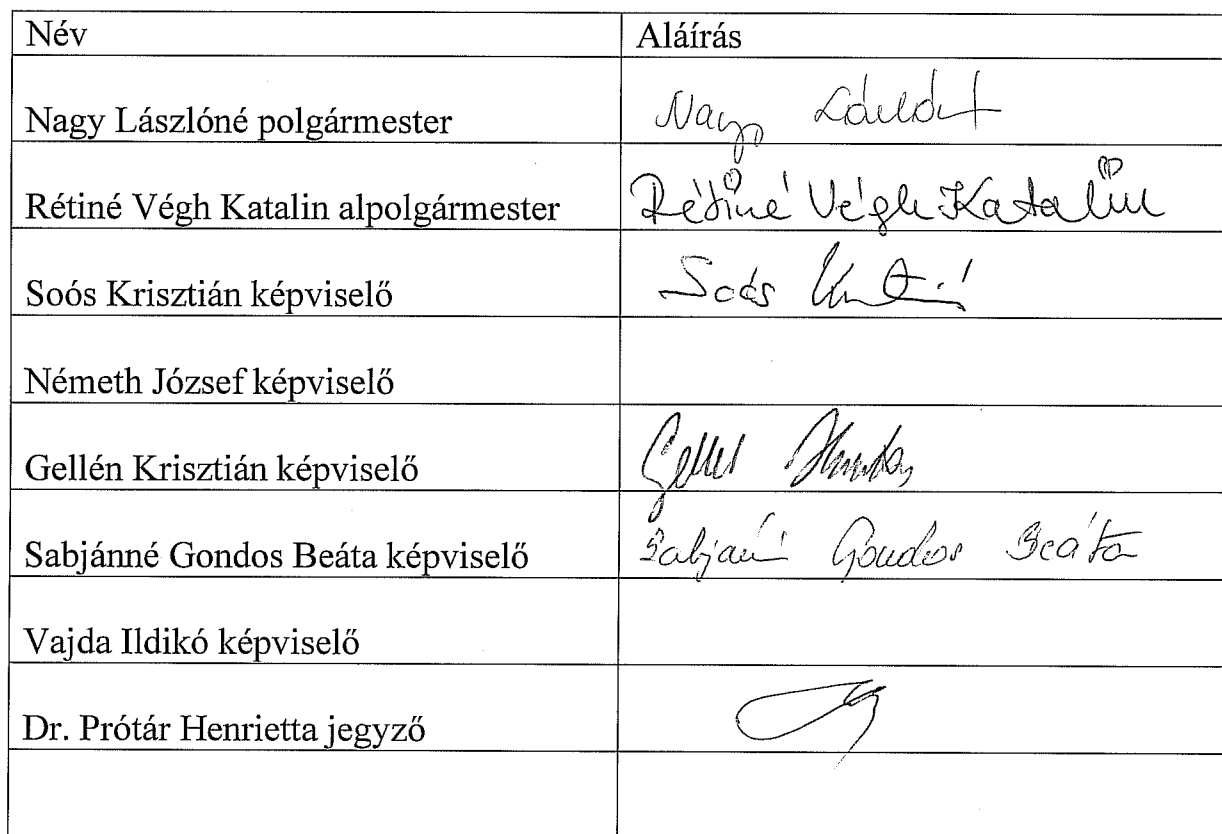 Név Aláírás
Nagy Lászlóné polgármester Nagy
Rétiné Végh Katalin alpolgármester Rétiné Végh Katalin
Soós Krisztián képviselő Soós
Németh József képviselő
Gellén Krisztián képviselő
Sabjánné Gondos Beáta képviselő Gondos Beáta
Vajda Ildikó képviselő
Dr. Prótár Henrietta jegyző